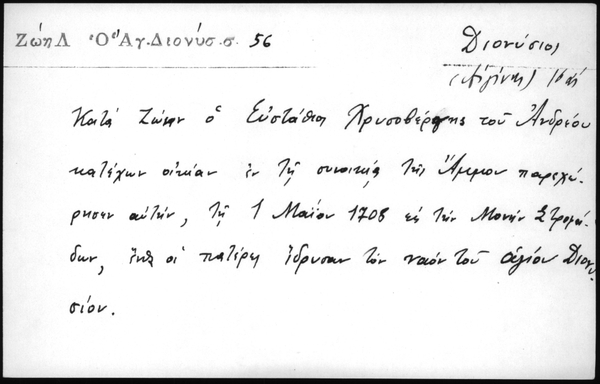 Ζώης Λ. Ὁ Ἅγ. Διονύσ. σ. 56
Διονύσιος
(Αἰγίνης)
Κατὰ Ζώην ὁ Εὐστάθιος Χρυσοβέργης τοῦ Ἀνδρέου
κατέχων οἰκίαν ἐν τῇ συνοικίᾳ τῆς Ἄμμου παρεχώ-
ρησεν αὐτήν, τῇ 1 Μαΐου 1708 εἰς τὴν Μονὴν Στροφά-
δων, ἔνθα οἱ πατέρες ἵδρυσαν τὸν ναὸν τοῦ ἁγίου Διονυ-
σίου.